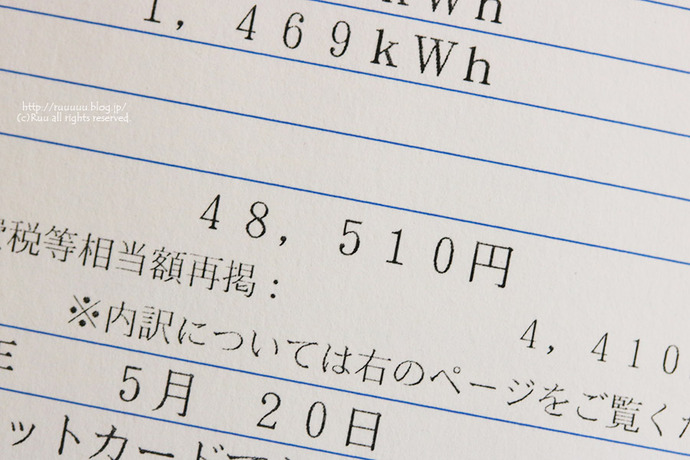 kWh
1,469kWh
http://ruuuuu.blog.jp/
(c)Ruu all rights reserved.
48,510円
税等相当額再掲:
4,410
※内訳については右のページをご覧くだ
5月 20日
ットカードで